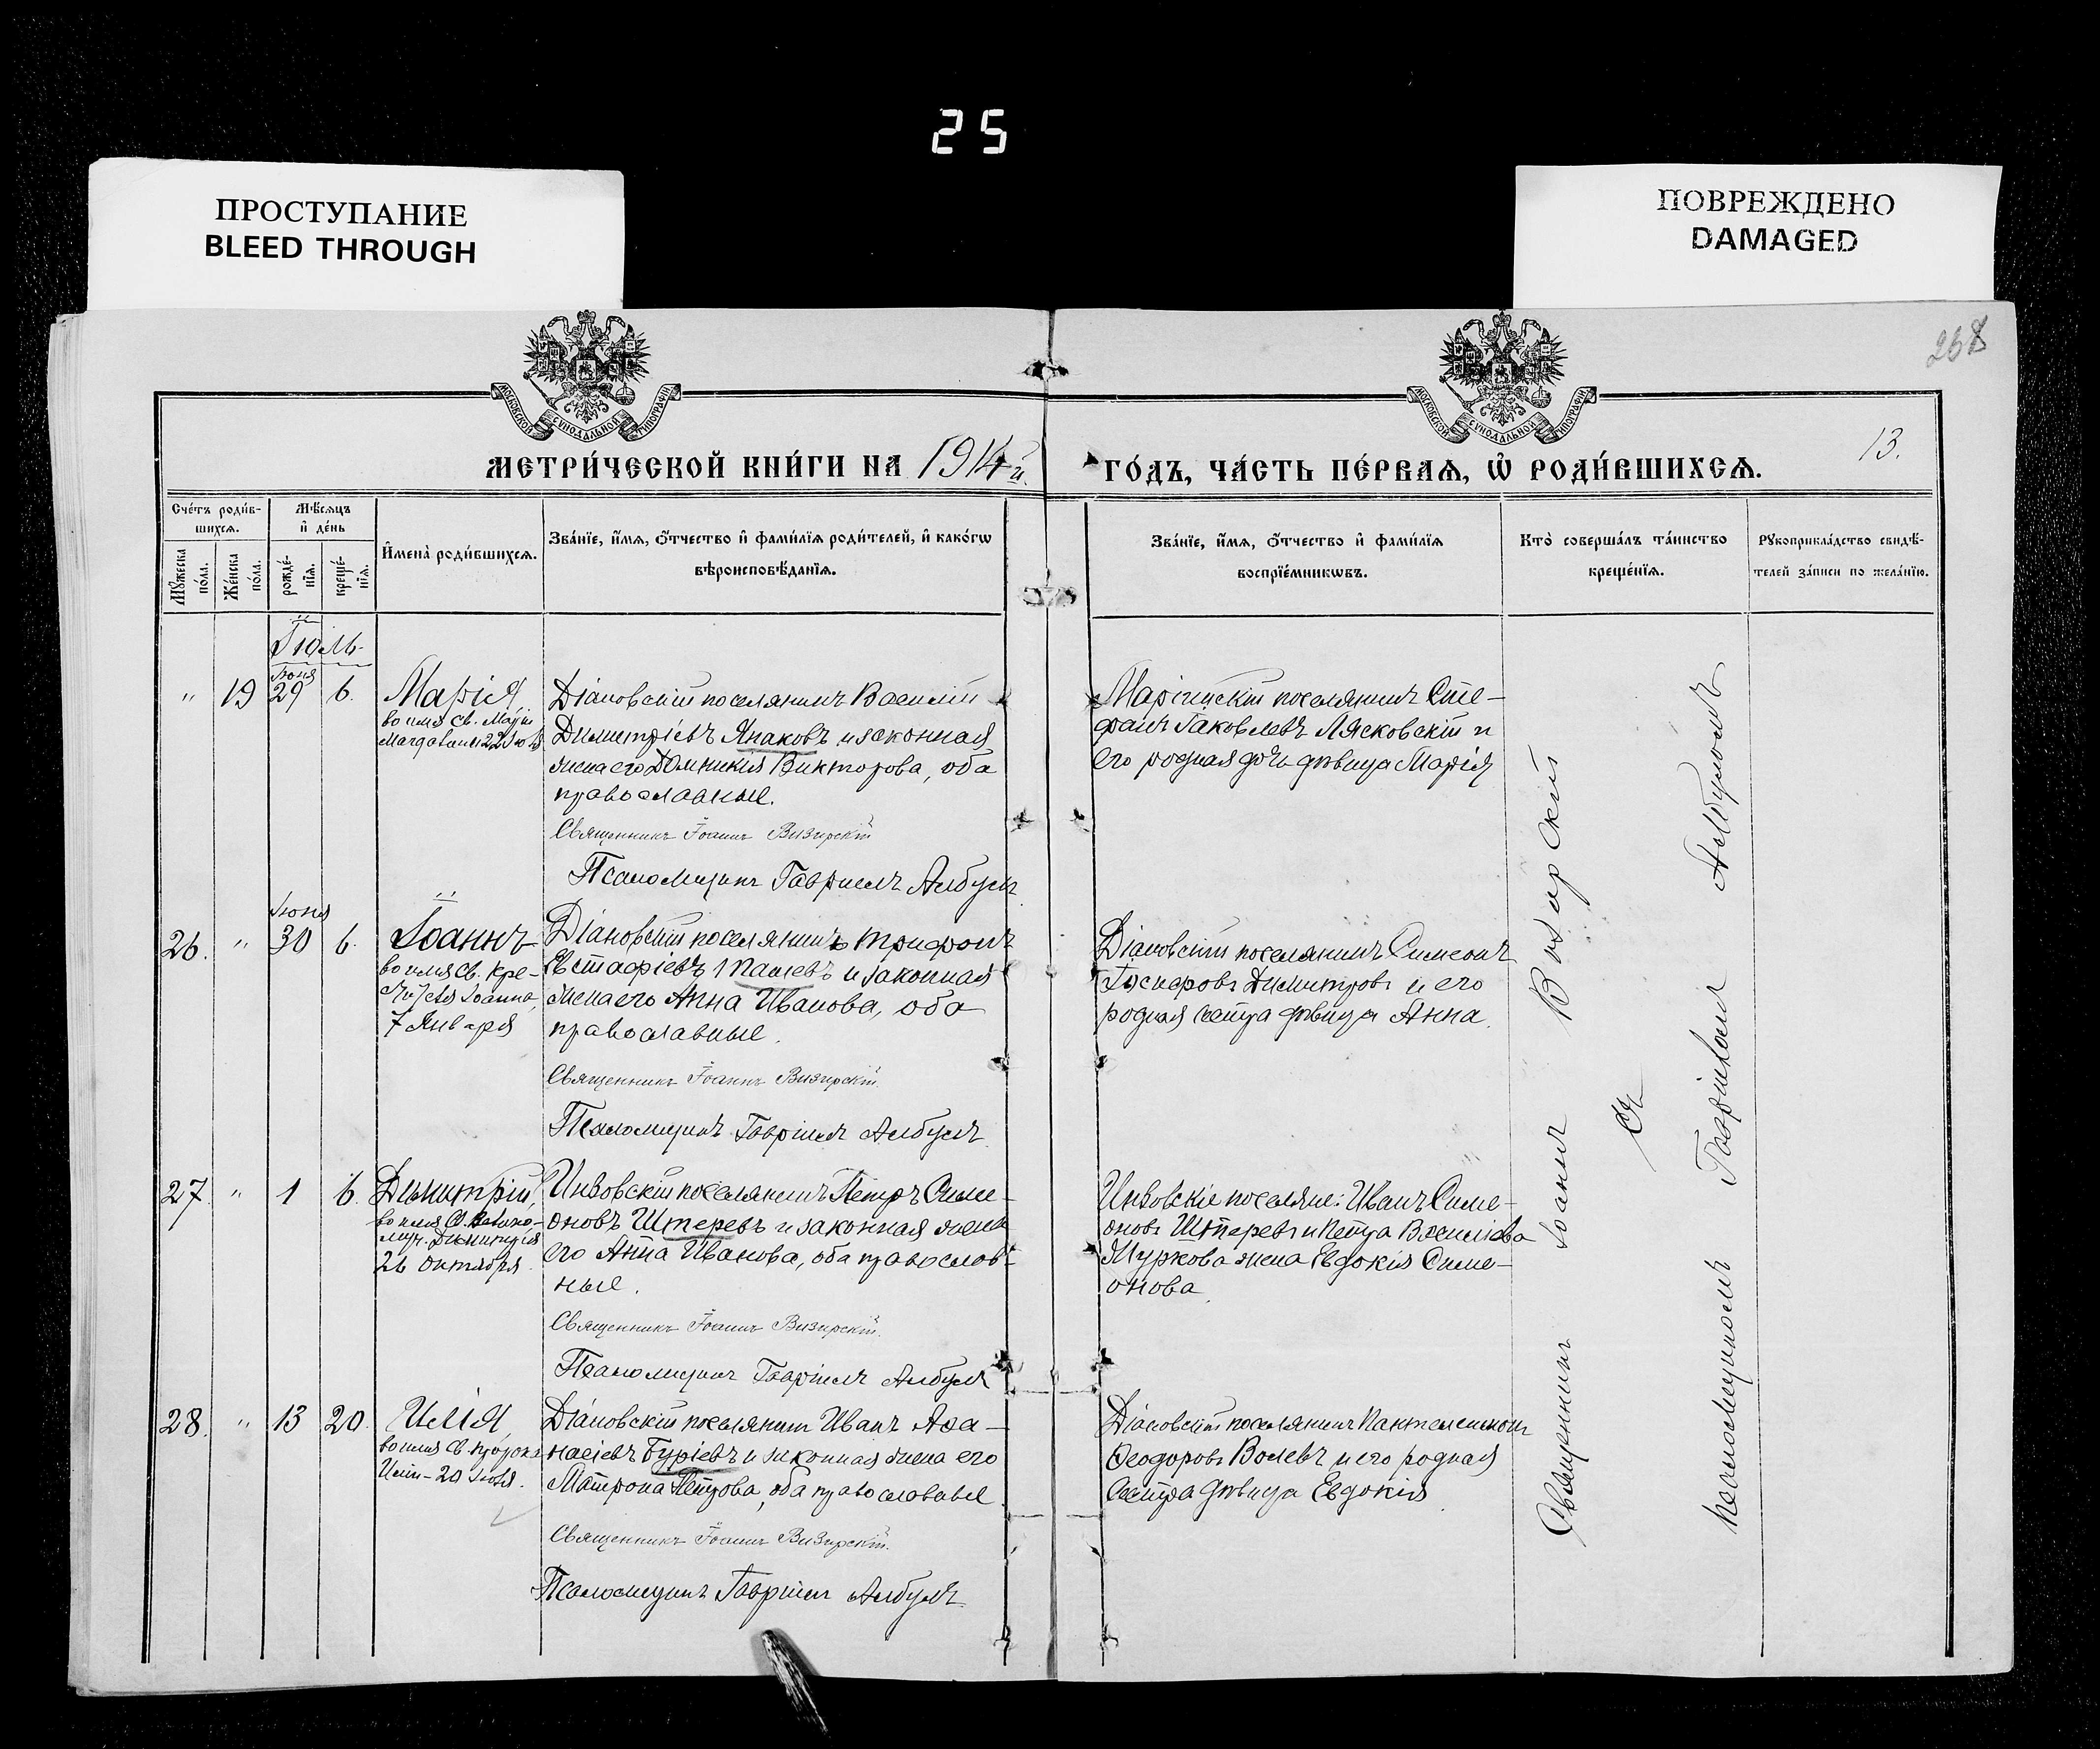 25
ПРОСТУПАНИЕ
BLEED THROUGH
ПОВРЕЖДЕНО
DAMAGED
268
МОСКОВСКОЙ СѴНОДАЛЬНОЙ ТИПОГРАФІИ
МОСКОВСКОЙ СѴНОДАЛЬНОЙ ТИПОГРАФІИ
МЕТРИ́ЧЕСКОЙ КНИ́ГИ НА 1914 й
ГО́ДЪ, ЧА́СТЬ ПЕ́РВАѦ, Ѡ҆ РОДИ́ВШИХСѦ.
13.
Сче́тъ роди́в-
шихсѧ.
Мѣ́сѧцъ
и҆ де́нь
Мꙋ́жеска
по́ла.
Же́нска
по́ла.
рожде́-
нїѧ.
креще́-
нїѧ.
И҆мена̀ роди́вшихсѧ.
Зва́нїе, и҆́мѧ, ѻ҆́тчество и҆ фами́лїѧ роди́телей, и҆ како́гѡ
вѣроисповѣ́данїѧ.
Зва́нїе, и҆́мѧ, ѻ҆́тчество и҆ фами́лїѧ
воспрїе́мникѡвъ.
Кто̀ соверша́лъ та́инство
креще́нїѧ.
Рꙋкоприкла́дство свидѣ́-
телей за́писи по жела́нїю.
Іюль
" 19 Іюня 29 6.
Марія
во имя Св. Маріи
Магдалины 22 Іюля
Діановскій поселянинъ Василій
Димитріевъ Янаковъ и законная
жена его Домникія Викторова, оба
православные.
Священникъ Іоаннъ Визирскій
Псаломщикъ Гавріилъ Албулъ
Маріинскій поселянинъ Сте-
фанъ Іаковлевъ Лясковскій и
его родная дочь дѣвица Марія
26. " Іюня 30 6.
Іоаннъ
во имя св. Кре-
стителя Іоанна,
7 Января
Діановскій поселянинъ Трифонъ
Евстафіевъ Палевъ и законная
жена его Анна Иванова, оба
православные.
Священникъ Іоаннъ Визирскій.
Псаломщикъ Гавріилъ Албулъ
Діановскій поселянинъ Симеонъ
Димитровъ и его
родная сестра дѣвица Анна.
27. " 1 6.
Димитрій,
во имя Св. Велико-
муч. Димитрія
26 Октября
Инзовскій поселянинъ Петръ Симе-
оновъ Штеревъ и законная жена
его Анна Иванова, оба православ-
ные.
Священникъ Іоаннъ Визирскій.
Псаломщикъ Гавріилъ Албулъ
Инзовскіе поселяне: Иванъ Симе-
оновъ Штеревъ и Петра Василіева
Муркова жена Евдокія Симе-
онова.
28. " 13 20.
Илія,
во имя Св. пророка
Иліи - 20 Іюля.
Діановскій поселянинъ Иванъ Аѳа-
насіевъ Буріевъ и законная жена его
Матрона Петрова, оба православные
Священникъ Іоаннъ Визирскій.
Псаломщикъ Гавріилъ Албулъ
Діановскій поселянинъ Пантелеимонъ
Ѳеодоровъ Волевъ и его родная
сестра дѣвица Евдокія
Священникъ Іоаннъ Визирскій
съ
псаломщикомъ Гавріиломъ Албуломъ